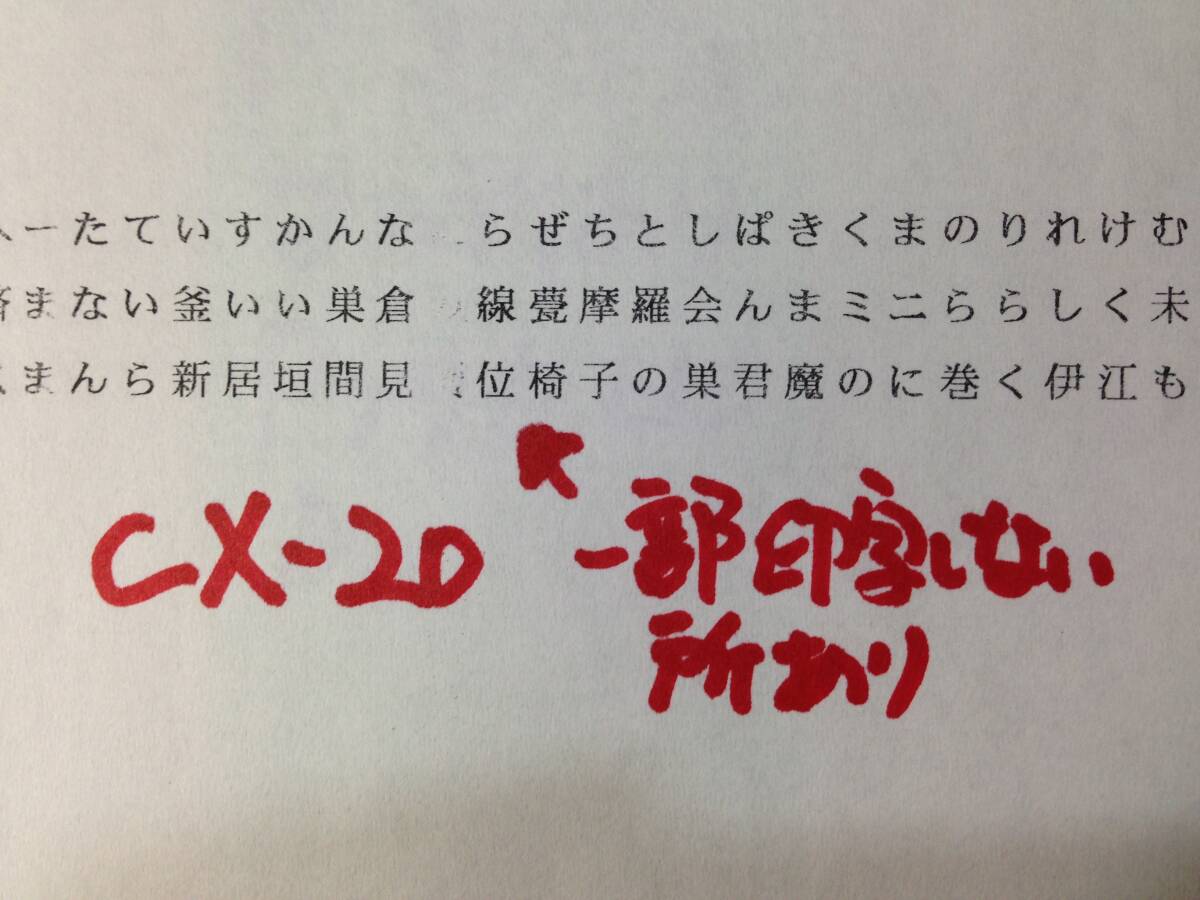 ーたていすかんな らぜちとしぱきくまのりれけむ
まない釜いい巣倉 線甍摩羅会んまミニららしく未
まんら新居垣間見 位椅子の巣君魔のに巻く伊江も
CX-20
一部印字しない
所あり